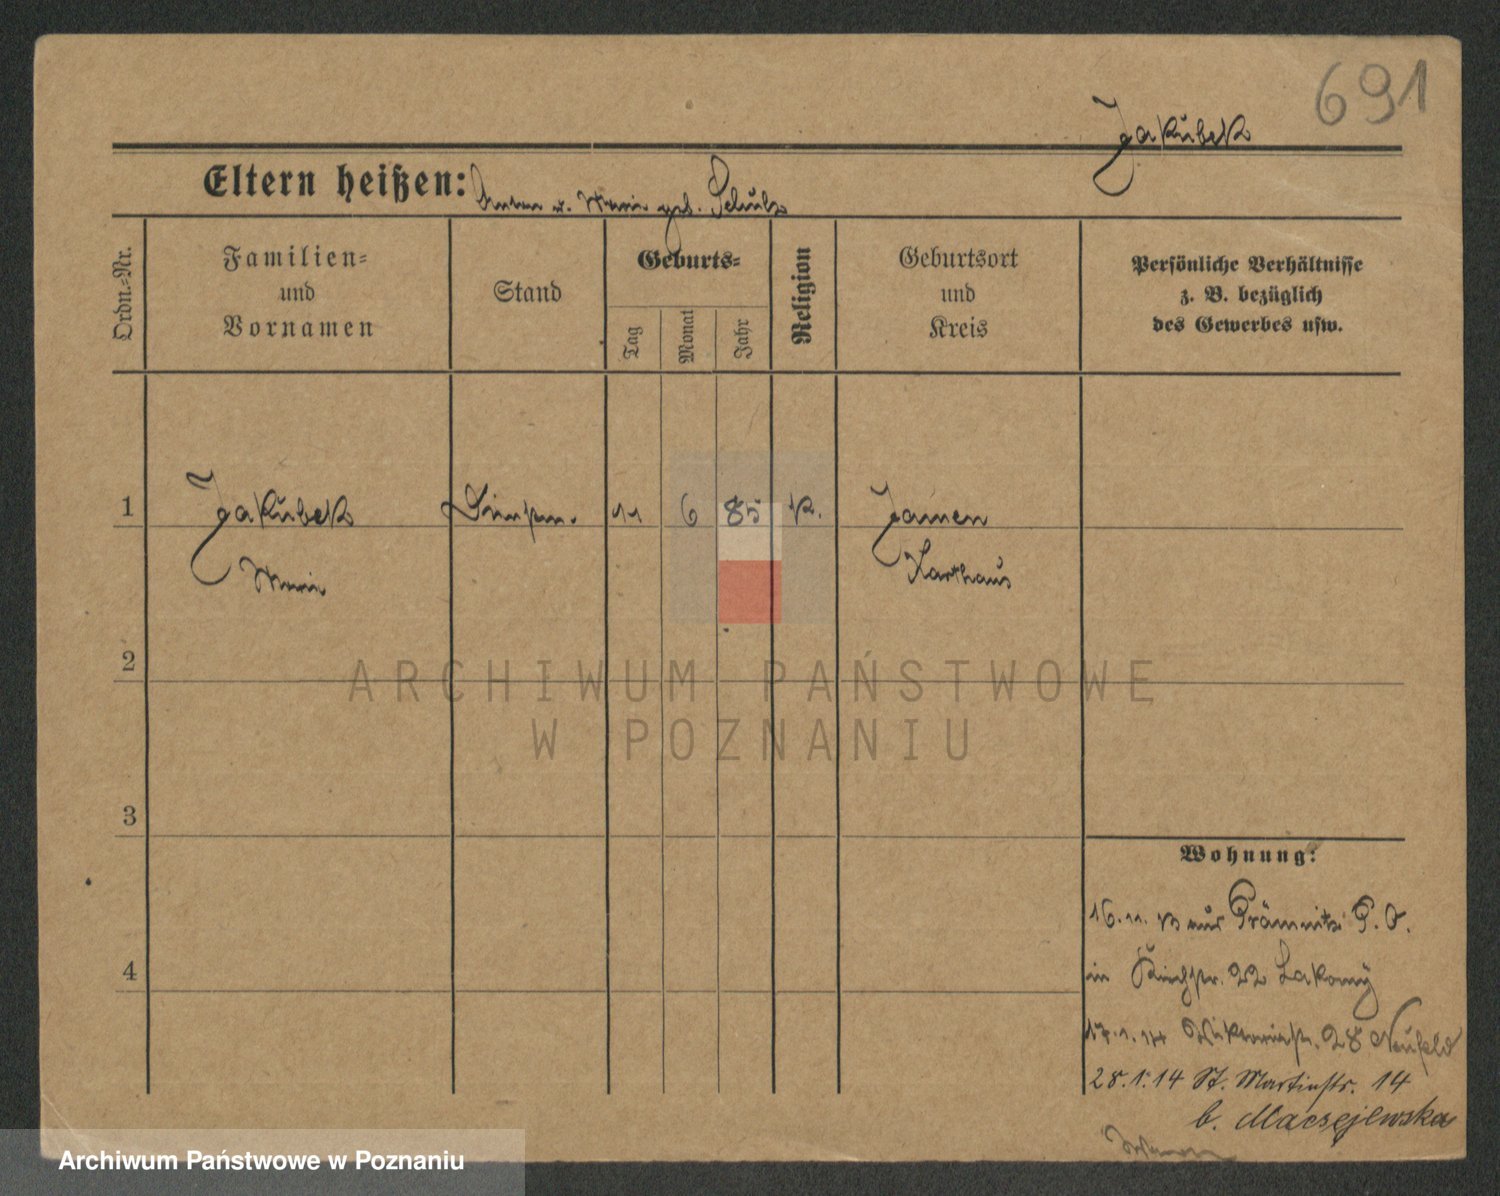 691
Jakubek
Eltern heißen: Anton u. Marie geb. Schulz
Ordn.-Nr.
Familien- und Vornamen
Stand
Geburts-
Tag
Monat
Jahr
Religion
Geburtsort und Kreis
Persönliche Verhältnisse
z. B. bezüglich
des Gewerbes usw.
1 Jakubek 11 6 85 k. Jamen
Marie Karthaus
2
3
4
ARCHIWUM PAŃSTWOWE
W POZNANIU
Wohnung:
16.11. 13 aus Prämnitz P. O.
in 22 Lakomy
17.1.14 Viktoriastr. 28 Neufeld
28.1.14 St. Martinstr. 14
b. Maciejewska
Archiwum Państwowe w Poznaniu